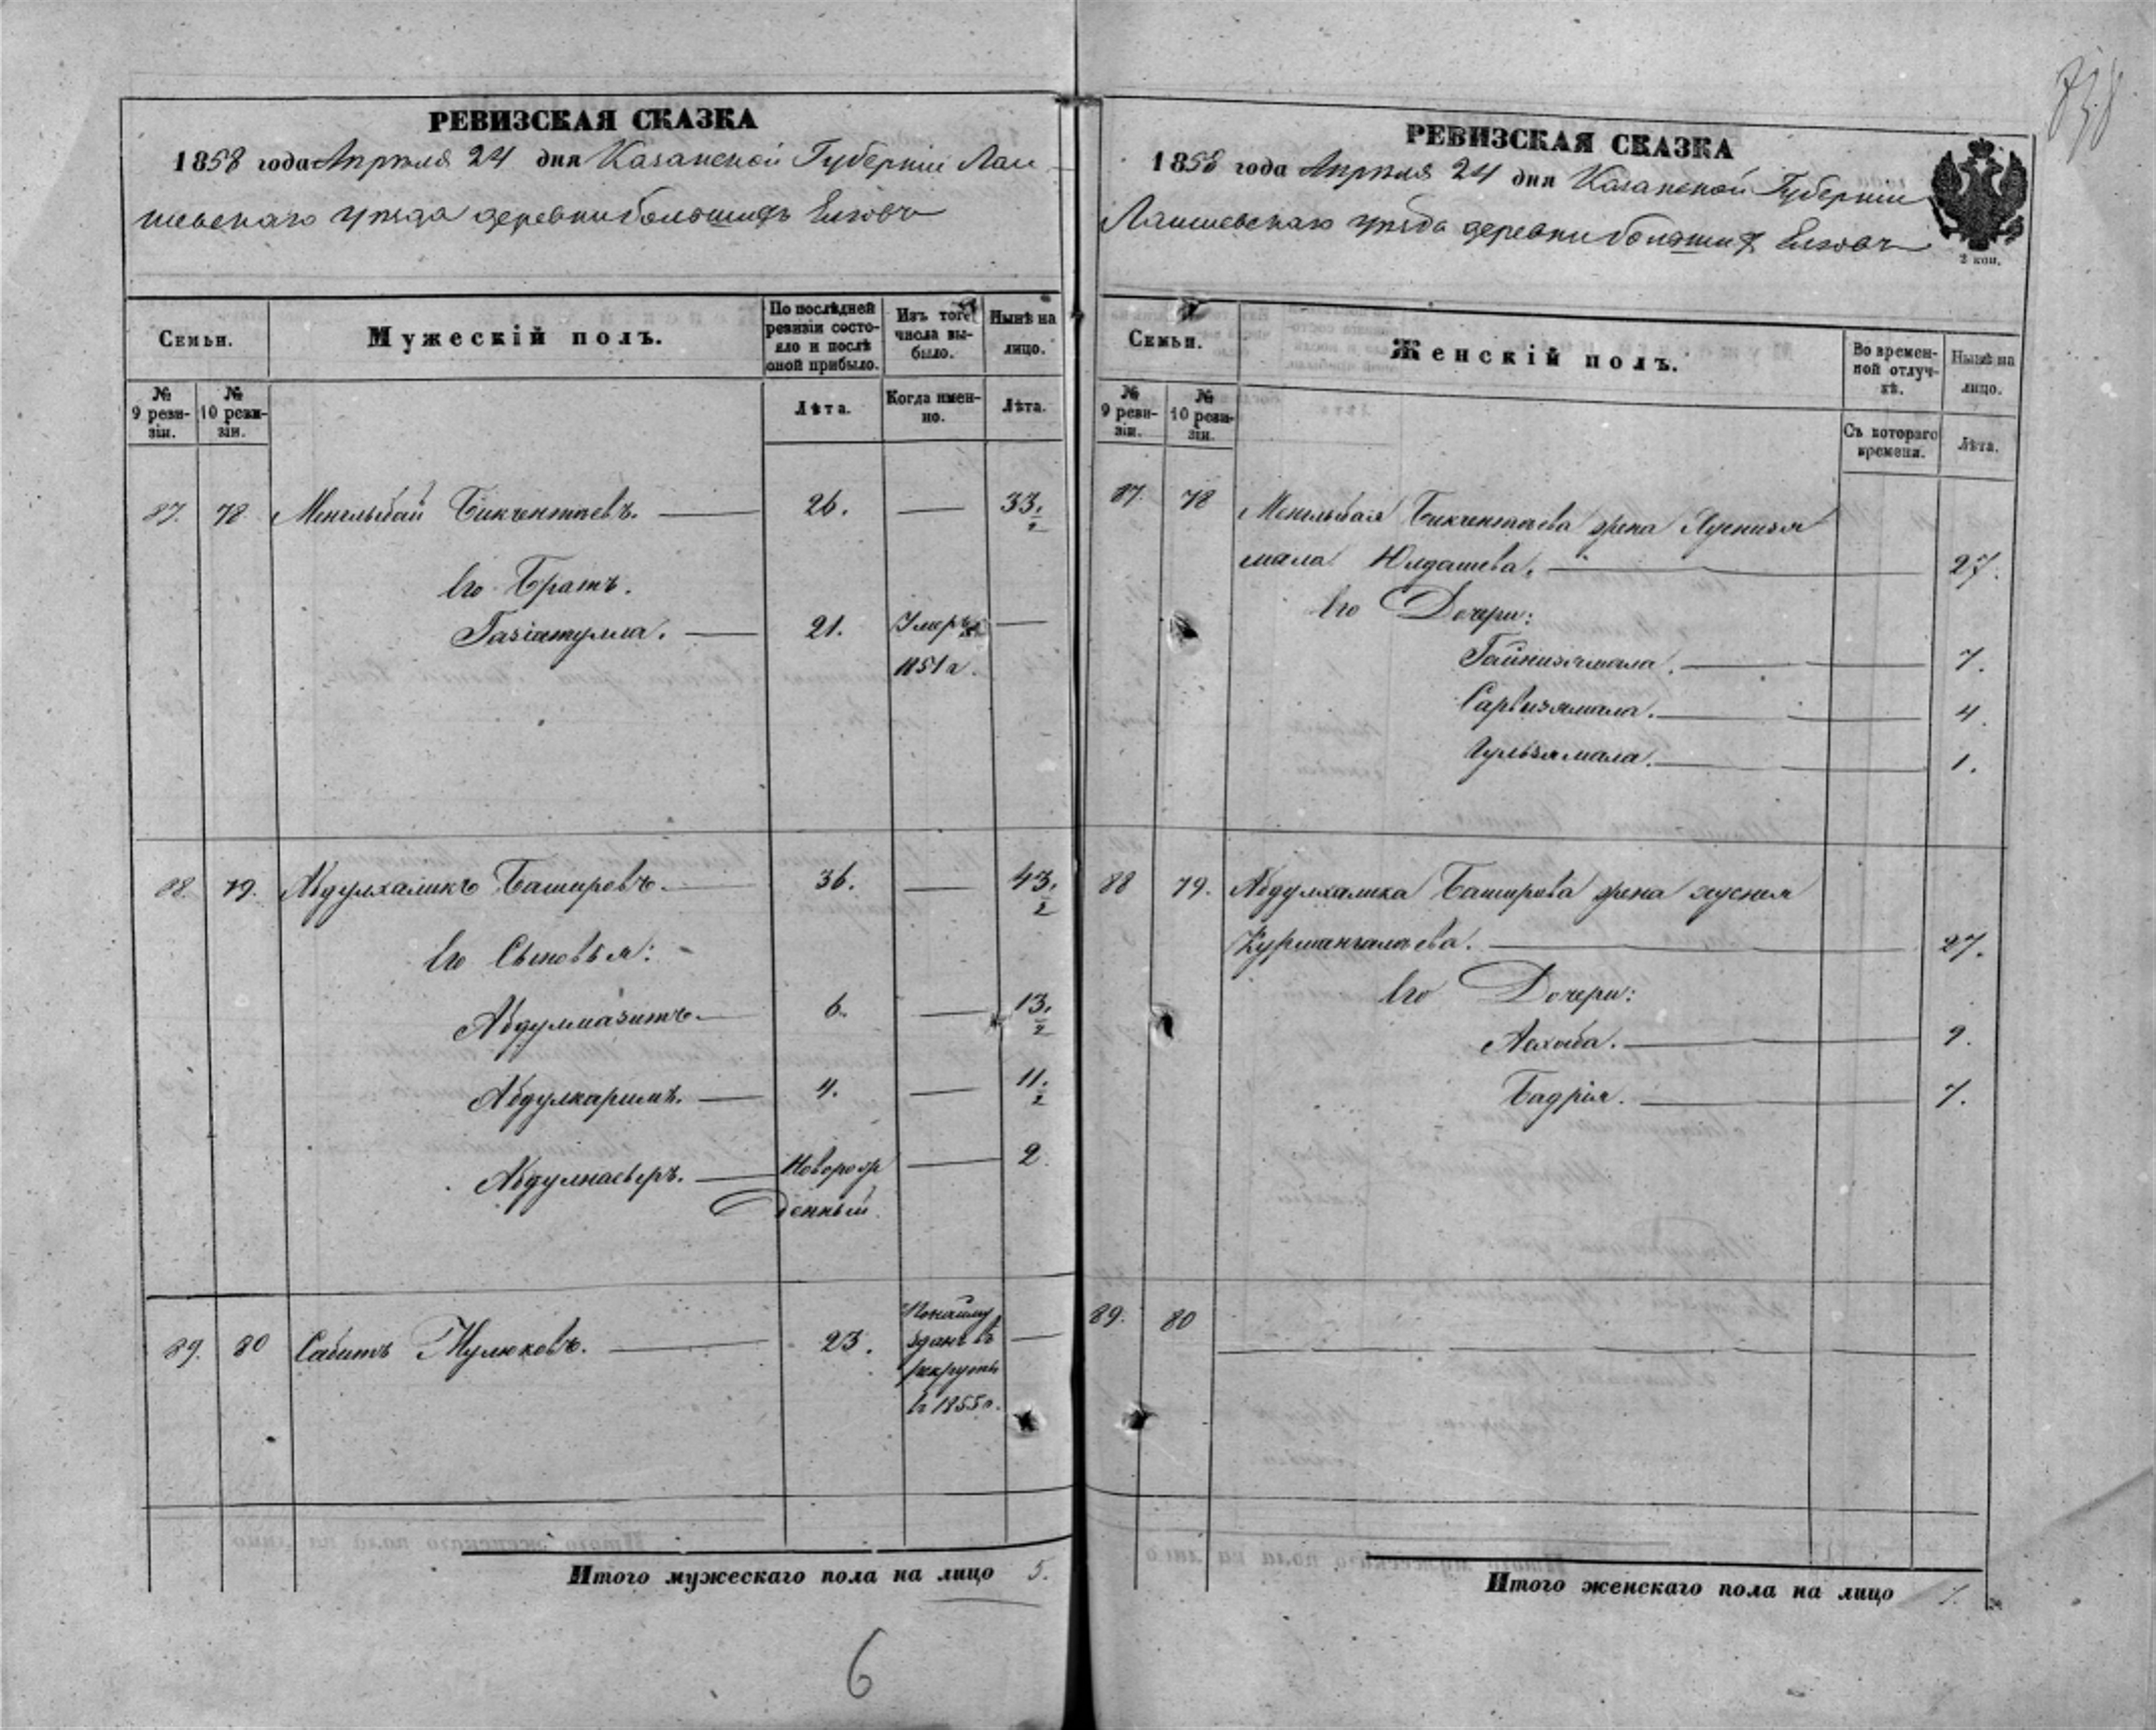 738
РЕВИЗСКАЯ СКАЗКА
1858 года Апрѣля 24 дня Казанской Губерніи Лаи-
шевскаго уѣзда деревни большихъ Елговъ
Семьи. Мужескій полъ. По послѣдней ревизіи состояло и послѣ оной прибыло. Изъ того числа выбыло. Нынѣ на лицо.
№ 9 ревизіи. № 10 ревизіи. Лѣта. Когда именно. Лѣта.
87. 78 Менглыбай Бикчентаевъ. 26. — 33. 2
Его Братъ.
Газіатулла. 21. Умеръ —
1851 г.
88. 79. Абдулхаликъ Башировъ. 36. — 43. 2
Его Сыновья:
Абдулмазитъ. 6. — 13. 2
Абдулкаримъ. 4. — 11. 2
Абдулнасыръ. Новорож — 2
денный.
89. 80 Сабитъ Кулюковъ. 23. По найму —
зданъ въ
рекруты
въ 1855 г.
Итого мужескаго пола на лицо 5.
6
РЕВИЗСКАЯ СКАЗКА
1858 года Апрѣля 24 дня Казанской Губерніи
Лаишевскаго уѣзда деревни большихъ Елговъ
2 коп.
Семьи. Женскій полъ. Во временной отлучкѣ. Нынѣ на лицо.
№ 9 ревизіи. № 10 ревизіи. Съ котораго времени. Лѣта.
87. 78 Менглыбая Бикчентаева жена Хуснизя
мала Юлдашева. 27.
Его Дочери:
Гайнизямала. 7.
Сарвизямала. 4.
Гульзямала. 1.
88 79. Абдулхалика Баширова жена хусня
Курмангалаева. 27.
Его Дочери:
9.
Бадрія. 7.
89. 80
Итого женскаго пола на лицо 7.